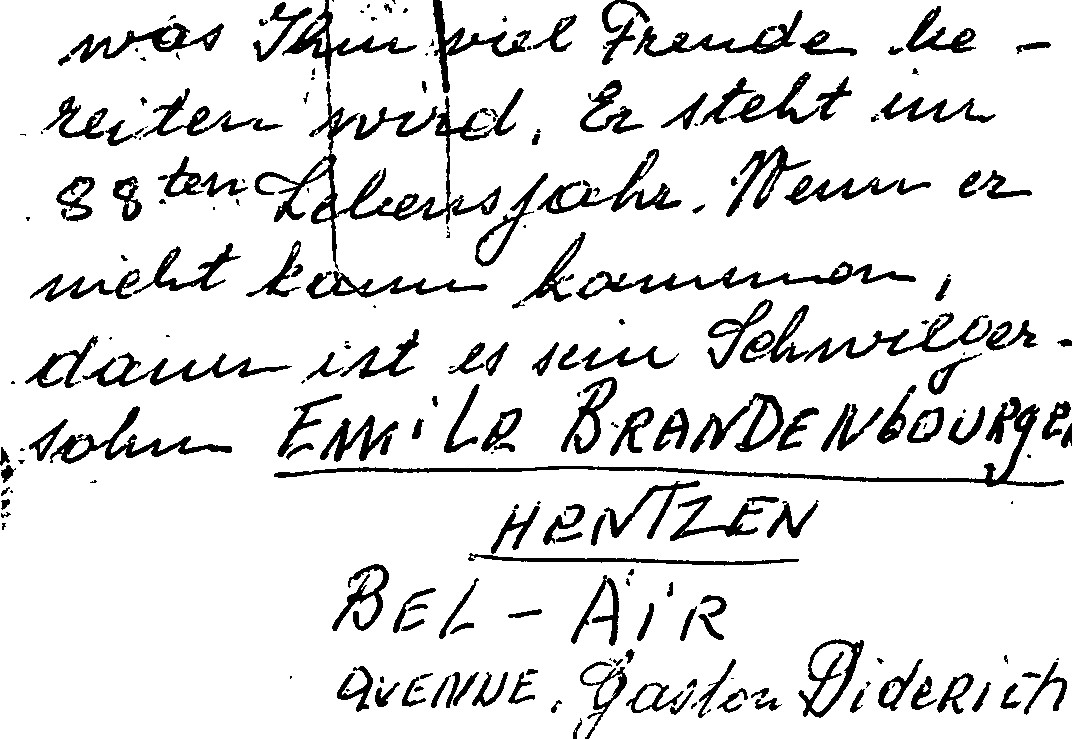 was Ihm viel Freude be-
reiten wird. Er steht im
88ten Lebensjahr. Wenn er
nicht kann kommen,
dann ist es sein Schwieger-
sohn EMiLe BRANDENbOURgER
HENTZEN
BEL - AiR
AVENUE, Gaston DiDERich